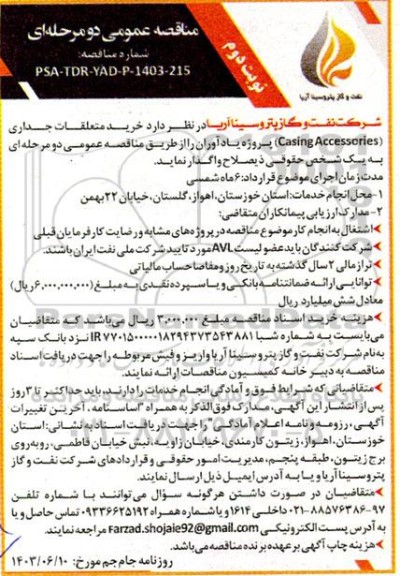 مناقصه عمومی دو مرحله‌ای
شماره مناقصه:
PSA-TDR-YAD-P-1403-215
نوبت دوم
نفت و گاز پتروسینا آریا
شرکت نفت و گاز پتروسینا آریا در نظر دارد خرید متعلقات جداری
(Casing Accessories) پروژه یادآوران را از طریق مناقصه عمومی دو مرحله ای
به یک شخص حقوقی ذیصلاح واگذار نماید.
مدت زمان اجرای موضوع قرارداد: ۶ ماه شمسی
۱- محل انجام خدمات: استان خوزستان، اهواز، گلستان، خیابان ۲۲ بهمن
۲- مدارک ارزیابی پیمانکاران متقاضی:
* اشتغال به انجام کار موضوع مناقصه در پروژه های مشابه و رضایت کارفرمایان قبلی
* شرکت کنندگان باید عضو لیست AVL مورد تایید شرکت ملی نفت ایران باشند.
* تراز مالی ۲ سال گذشته به تاریخ روز و مفاصا حساب مالیاتی
* توانایی ارائه ضمانتنامه بانکی و یا سپرده نقدی به مبلغ (۶,۰۰۰,۰۰۰,۰۰۰ ریال)
معادل شش میلیارد ریال
* هزینه خرید اسناد مناقصه مبلغ ۳,۰۰۰,۰۰۰ ریال می‌باشد که متقاضیان
می‌بایست به شماره شبا IR ۷۷۰۱۵۰۰۰۰۰۱۸۲۹۴۳۷۳۵۴۳۸۸۱ نزد بانک سپه
به نام شرکت نفت و گاز پتروسینا آریا واریز و فیش مربوطه را جهت دریافت اسناد
مناقصه به دبیرخانه کمیسیون مناقصات ارائه نمایند.
* متقاضیانی که شرایط فوق و آمادگی انجام خدمات را دارند، باید حداکثر تا ۳ روز
پس از انتشار این آگهی، مدارک فوق الذکر به همراه "اساسنامه، آخرین تغییرات
آگهی، رزومه و نامه اعلام آمادگی" را جهت دریافت اسناد به نشانی: استان
خوزستان، اهواز، زیتون کارمندی، خیابان زاویه، نبش خیابان فاطمی، روبه‌روی
برج زیتون، طبقه پنجم، مدیریت امور حقوقی و قراردادهای شرکت نفت و گاز
پتروسینا آریا و یا به آدرس ایمیل ذیل ارسال نمایند.
* متقاضیان در صورت داشتن هرگونه سؤال می‌توانند با شماره تلفن
۹۷-۸۸۵۷۶۳۸۶-۰۲۱ داخلی ۱۶۱۴ و یا شماره همراه ۰۹۳۳۶۶۲۵۱۹۲ تماس حاصل و یا
به آدرس پست الکترونیکی Farzad.shojaie92@gmail.com مراجعه نمایند.
* هزینه چاپ آگهی بر عهده برنده مناقصه می‌باشد.
روزنامه جام جم مورخ: ۱۴۰۳/۰۶/۱۰